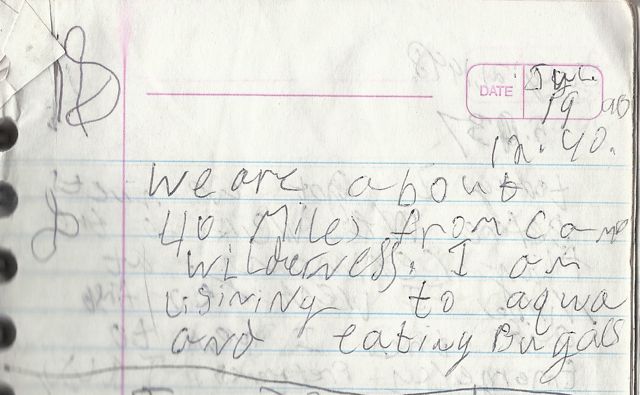 DATE
July
19
12:40.
We are about
40 Miles from Camp
wilderness. I am
lisining to aqwa
and eating Bugals